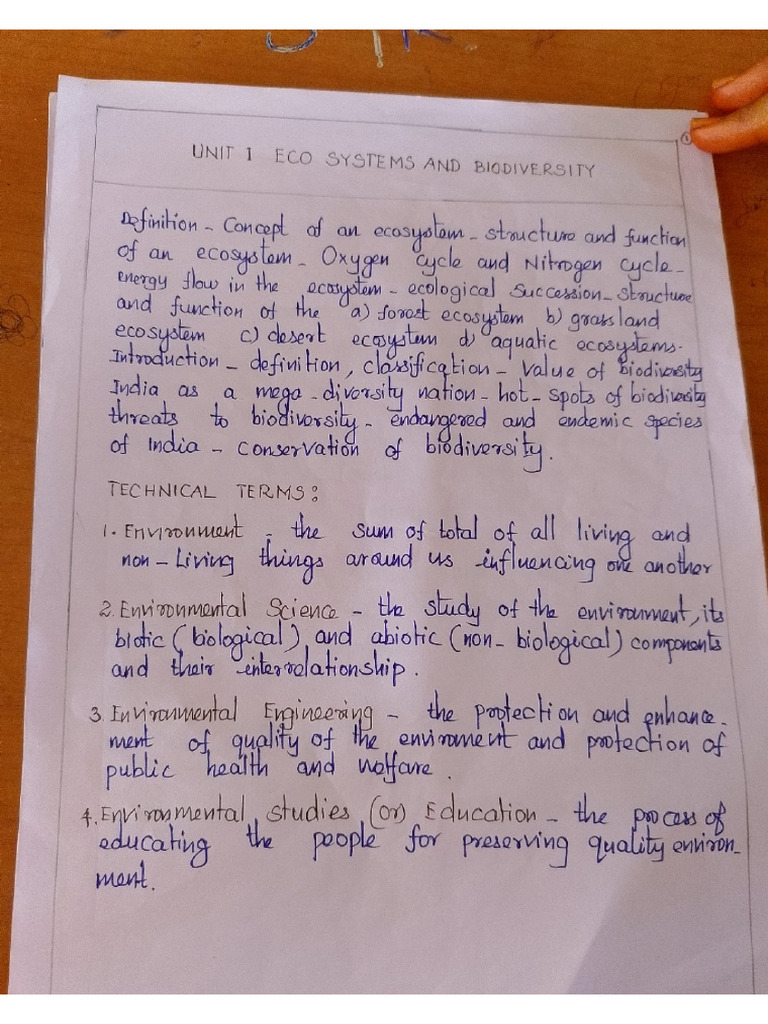 UNIT 1 ECO SYSTEMS AND BIODIVERSITY
Definition - Concept of an ecosystem - structure and function
of an ecosystem - Oxygen Cycle and Nitrogen Cycle -
energy flow in the ecosystem - ecological succession - structure
and function of the a) forest ecosystem b) grassland
ecosystem c) desert ecosystem d) aquatic ecosystems.
Introduction - definition, classification - value of biodiversity
India as a mega - diversity nation - hot - spots of biodiversity
threats to biodiversity - endangered and endemic species
of India - conservation of biodiversity.
TECHNICAL TERMS:
1. Environment - the sum of total of all living and
non - Living things around us influencing one another
2. Environmental Science - the study of the environment, its
biotic (biological) and abiotic (non - biological) components
and their interrelationship.
3. Environmental Engineering - the protection and enhance -
ment of quality of the enviroment and protection of
public health and welfare.
4. Environmental studies (or) Education - the process of
educating the people for preserving quality environ -
ment.